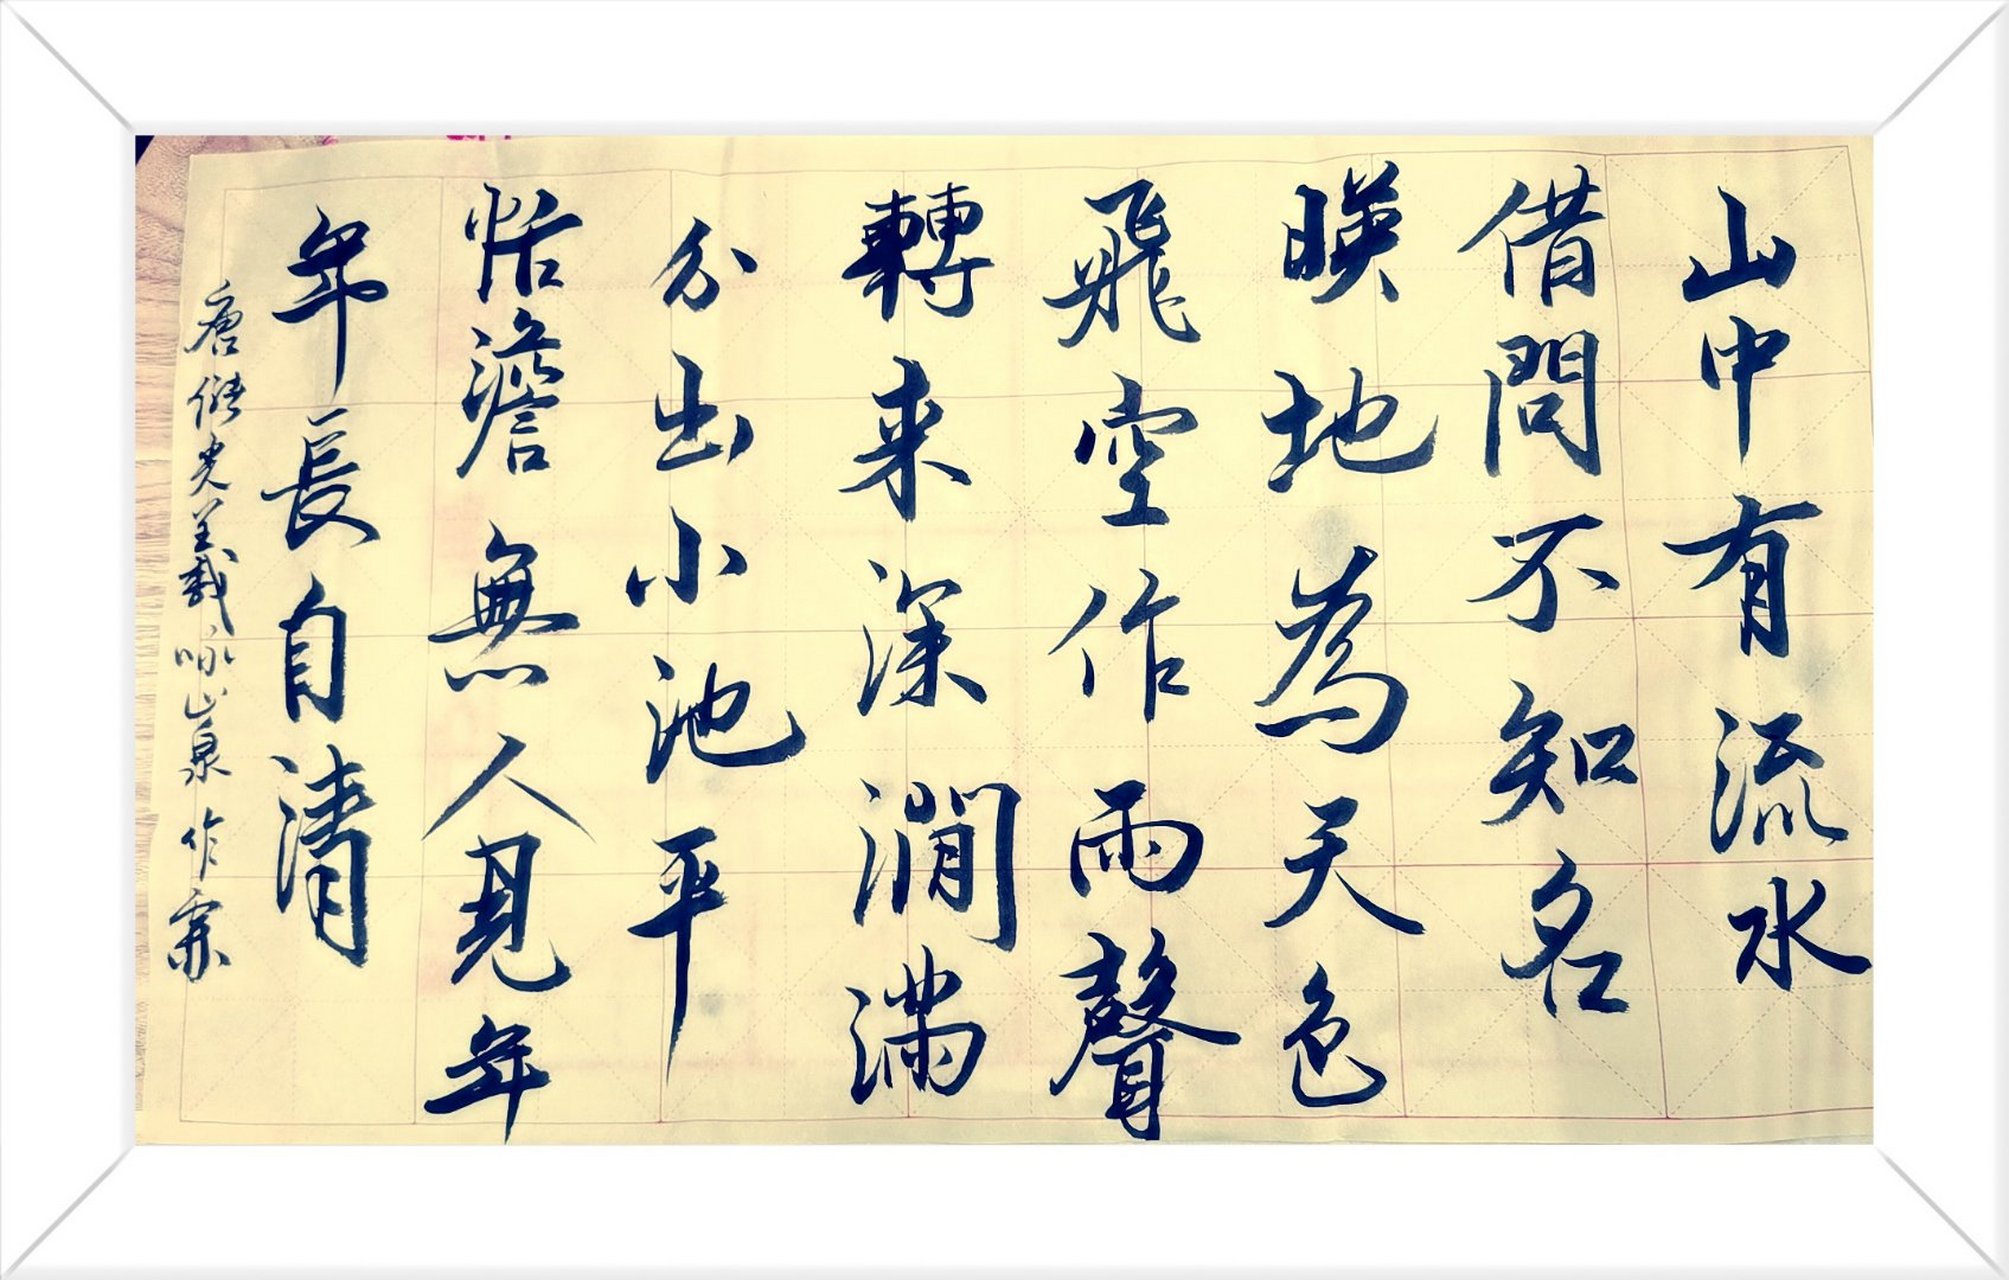 山中有流水
借問不知名
暎地為天色
飛空作雨聲
轉來深澗滿
分出小池平
恬澹無人見年
年長自清
唐儲光羲咏山泉作